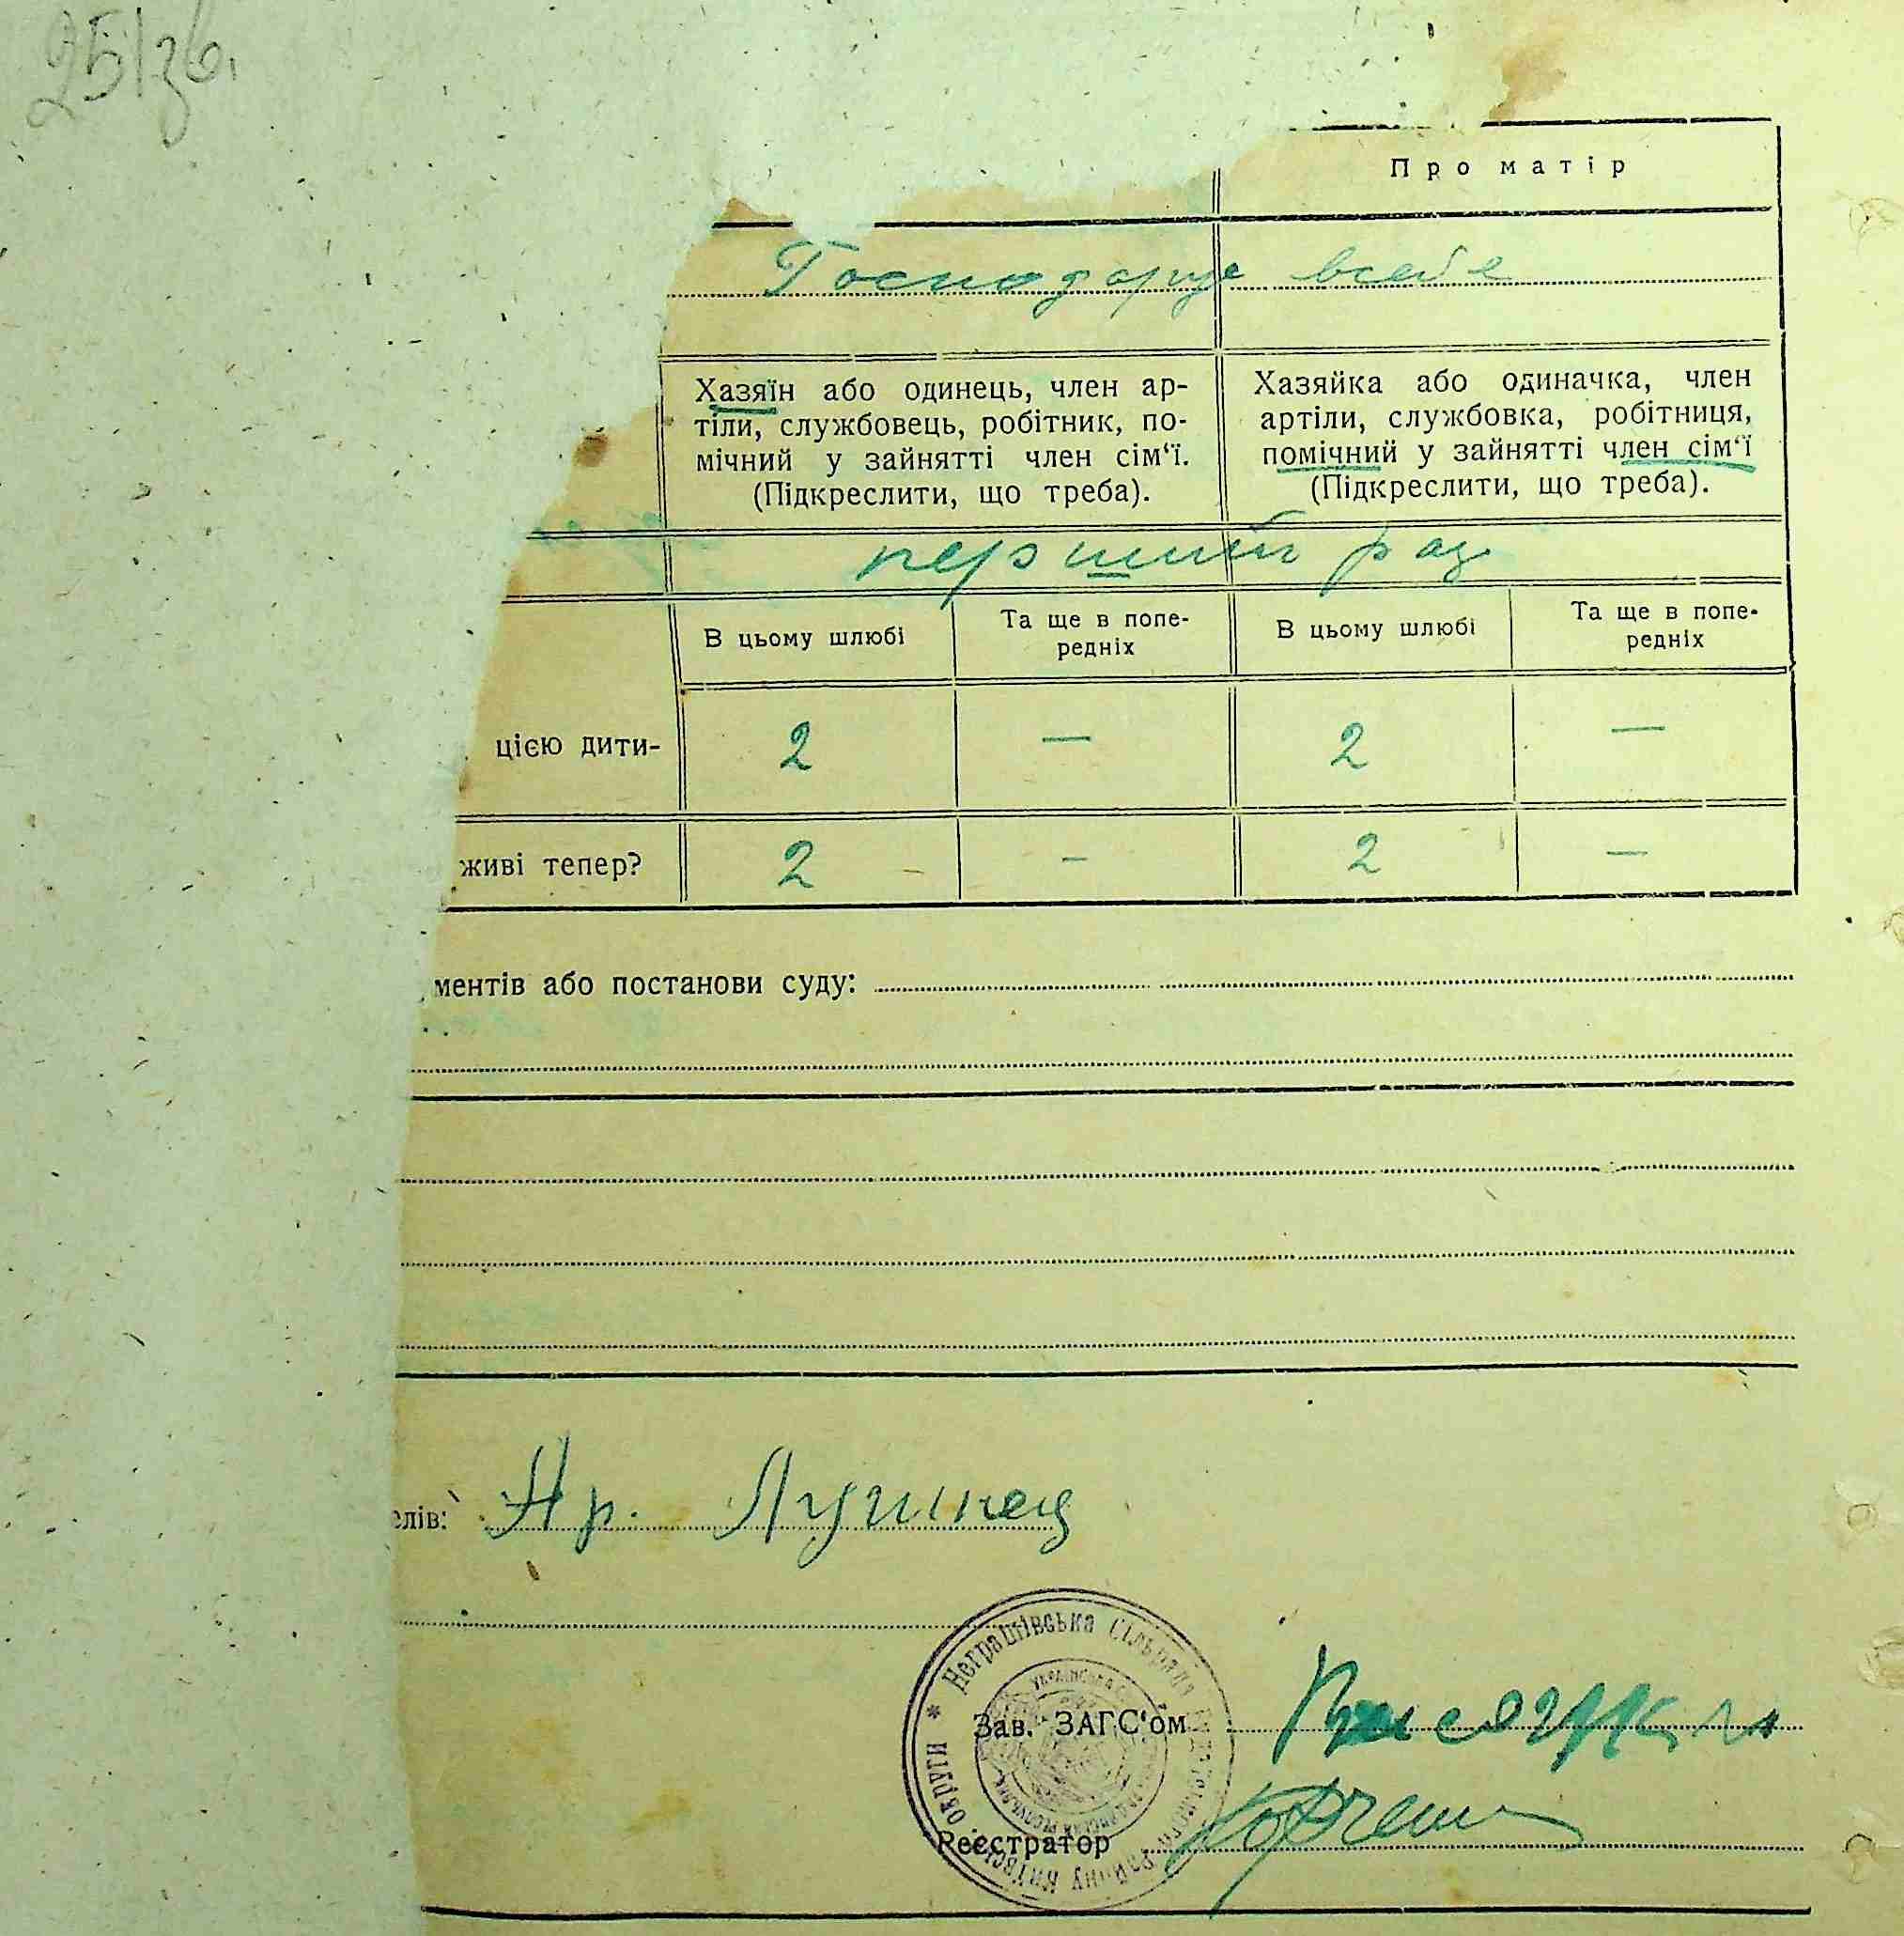 25/зв.
Про матір
Господарує в себе
Хазяїн або одинець, член ар-
тіли, службовець, робітник, по-
мічний у зайнятті член сім‘ї.
(Підкреслити, що треба).
Хазяйка або одиначка, член
артіли, службовка, робітниця,
помічний у зайнятті член сім‘ї
(Підкреслити, що треба).
перший раз
В цьому шлюбі
Та ще в попе-
редніх
В цьому шлюбі
Та ще в попе-
редніх
цією дити-
2 — 2 —
живі тепер?
2 – 2 —
ментів або постанови суду:
елів:
Неграшівська Сільрада району Київської округи
Зав. ЗАГС‘ом
Реєстратор